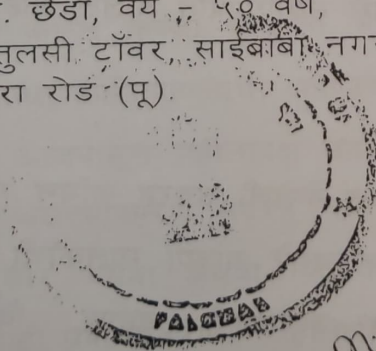 . छेडा, वय - ५० वर्ष,
तुलसी टॉवर, साईबाबा नग
रा रोड (पू).
PALGHAR